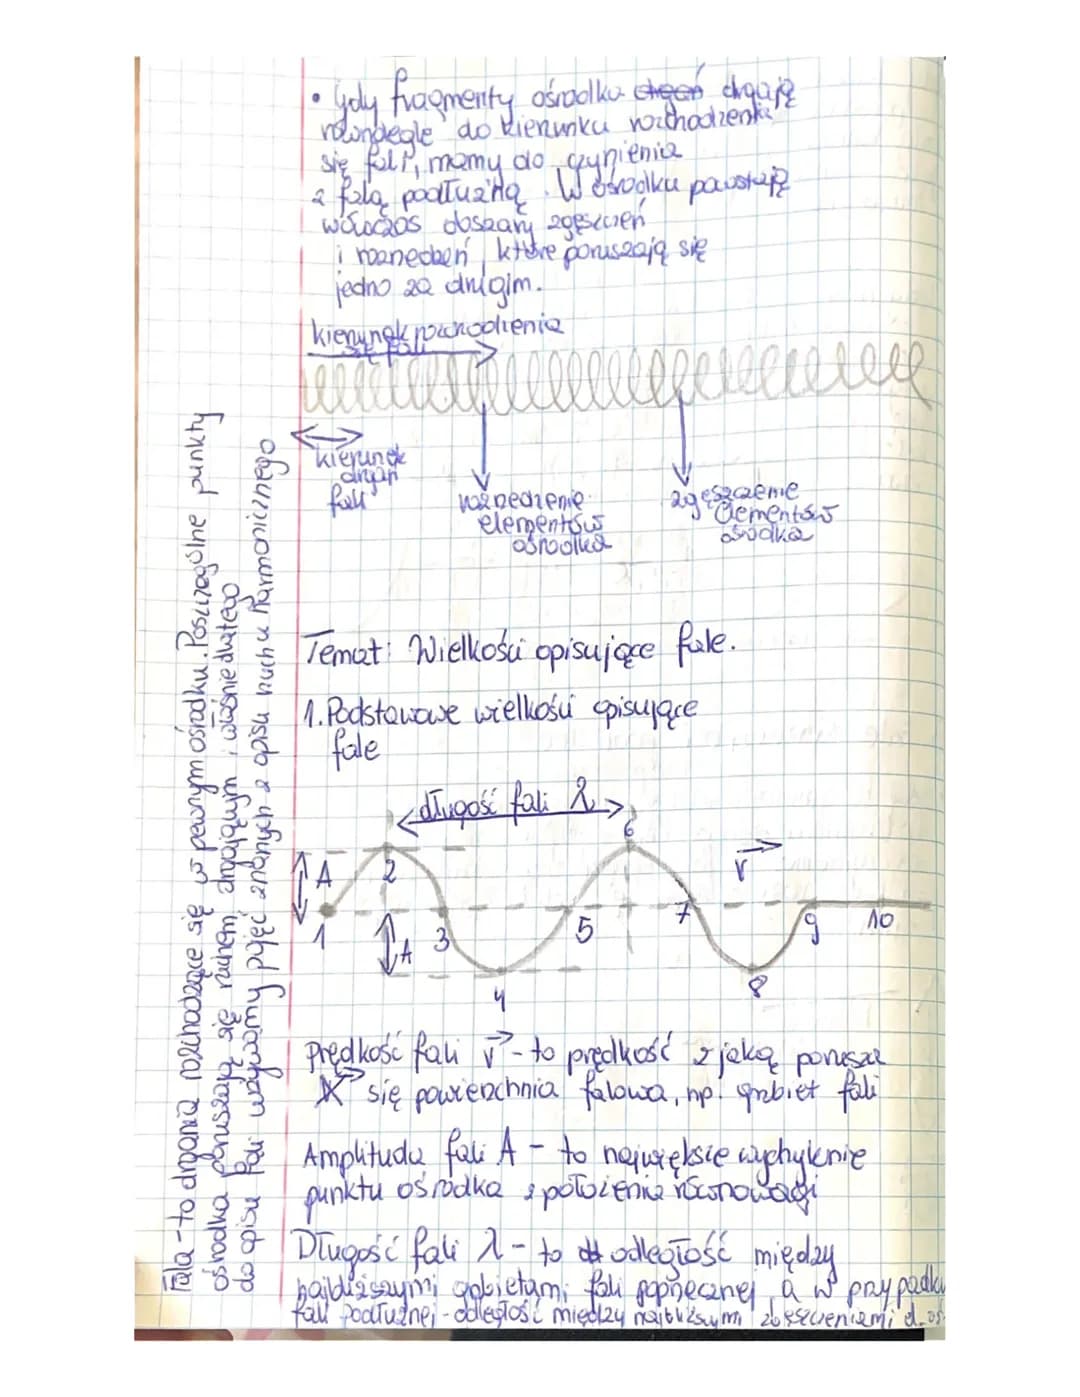 • Gdy fragmenty ośrodku drgają
równolegle do kierunku rozchodzenia
się fali, mamy do czynienia
z falą podłużną. W ośrodku powstają
wówczas obszary zgęszczeń
i rozrzedzeń, które poruszają się
jedno za drugim.
kierunek rozchodzenia
się fali
kierunek
drgań
fali
rozrzedzenie
elementów
ośrodka
zgęszczenie
elementów
ośrodka
Temat: Wielkości opisujące fale.
1. Podstawowe wielkości opisujące
fale
długość fali λ
A
A
v
1
2
3
4
5
6
7
8
9
10
Prędkość fali v - to prędkość z jaką porusza
się powierzchnia falowa, np. grzbiet fali
Amplituda fali A - to największe wychylenie
punktu ośrodka z położenia równowagi
Długość fali λ - to odległość między
najbliższymi grzbietami fali poprzecznej, a w przypadku
fali podłużnej - odległość między najbliższymi zgęszczeniami
Fala - to drgania rozchodzące się w pewnym ośrodku. Poszczególne punkty
ośrodka poruszają się ruchem drgającym i właśnie dlatego
do opisu fali używamy pojęć znanych z opisu ruchu harmonicznego